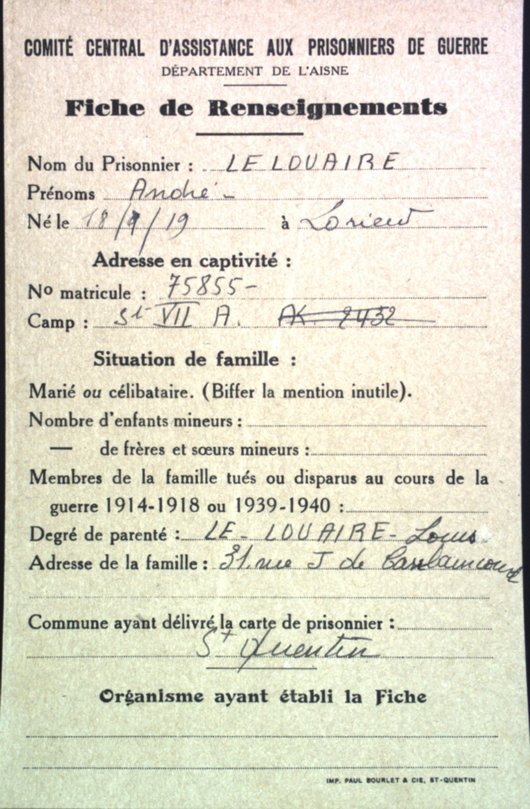 COMITÉ CENTRAL D'ASSISTANCE AUX PRISONNIERS DE GUERRE
DÉPARTEMENT DE L'AISNE
Fiche de Renseignements
Nom du Prisonnier : LE LOUAIRE
Prénoms André -
Né le 18/9/19 à Lorient
Adresse en captivité :
No matricule : 75855 -
Camp : St VII A. AK 2432
Situation de famille :
Marié ou célibataire. (Biffer la mention inutile).
Nombre d'enfants mineurs :
— de frères et sœurs mineurs :
Membres de la famille tués ou disparus au cours de la
guerre 1914-1918 ou 1939-1940 :
Degré de parenté : LE - LOUAIRE - Louis
Adresse de la famille : 31 rue J de
Commune ayant délivré la carte de prisonnier :
St Quentin
Organisme ayant établi la Fiche
IMP. PAUL BOURLET & CIE, ST-QUENTIN